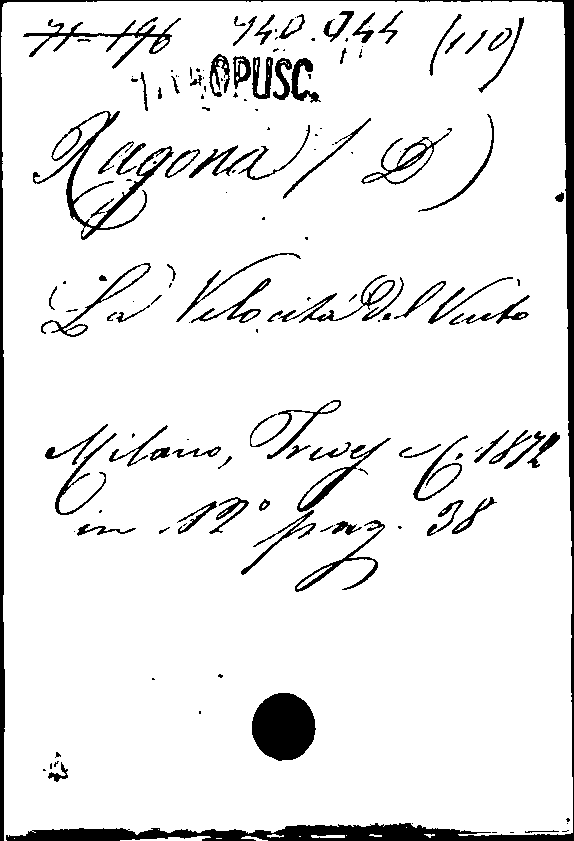 71-196 740.J.44 (110)
OPUSC.
Ragona (D)
La Velocità del Vento
Milano, Treves E. 1872
in 12° pag. 38